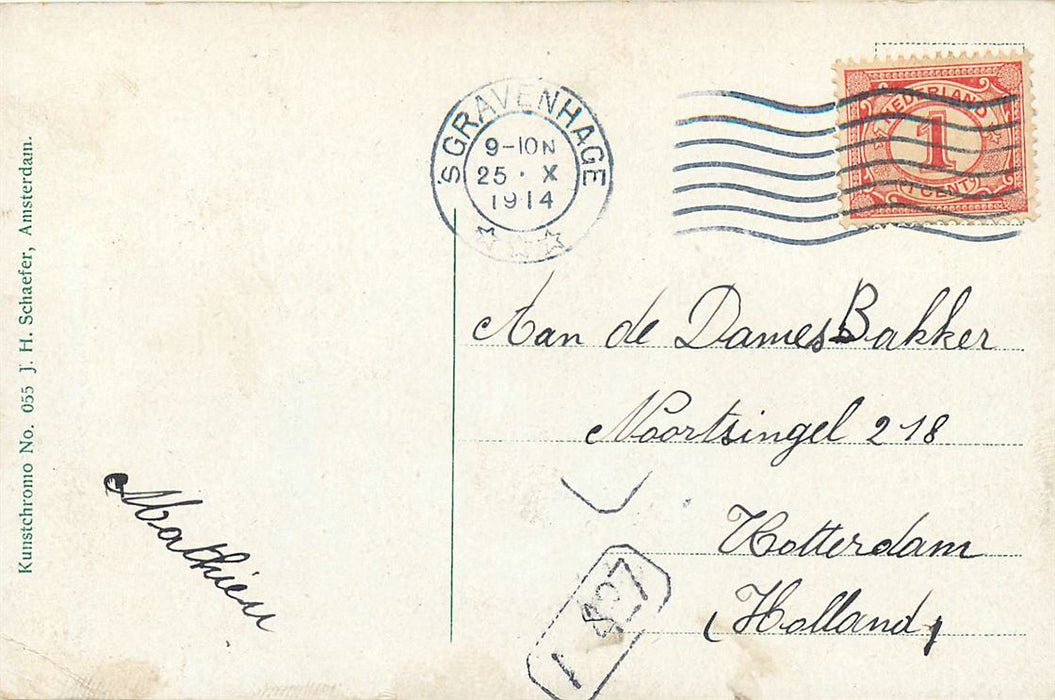 'S GRAVENHAGE
9-10N
25 · X
1914
NEDERLAND
1
(1 CENT)
Aan de Dames Bakker
Noortsingel 218
Rotterdam
(Holland)
Mathieu
Kunstchromo No. 055 J. H. Schaefer, Amsterdam.